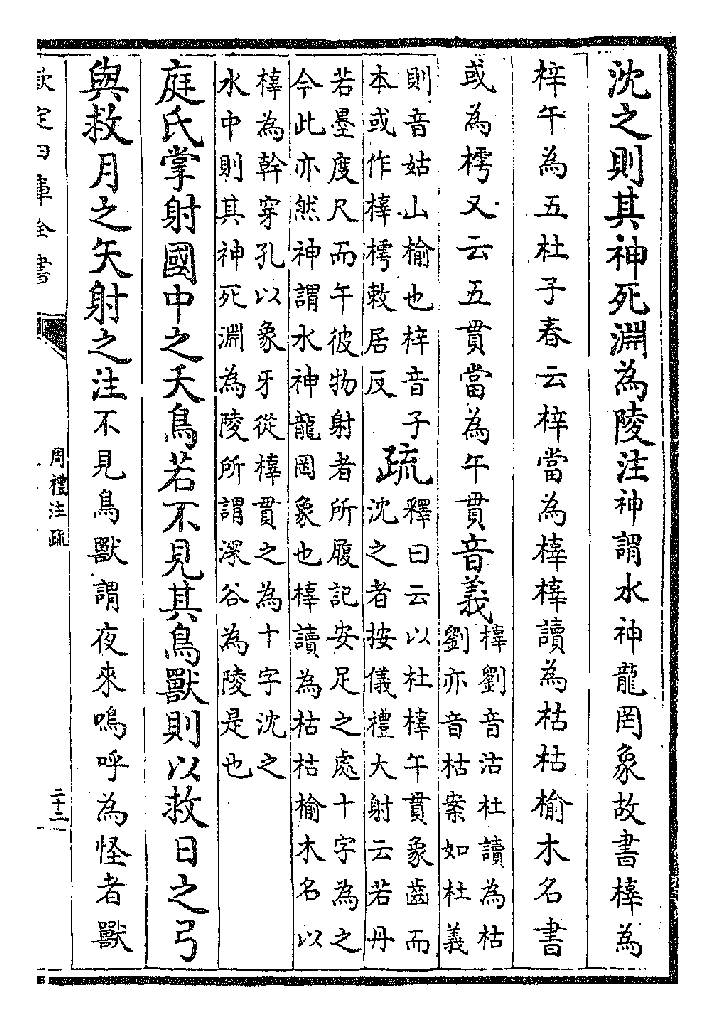 沈之則其神死淵為陵注神謂水神龍罔象故書橭為
梓午為五杜子春云梓當為橭橭讀為枯枯榆木名書
或為樗又云五貫當為午貫音義
橭劉音沽杜讀為枯
劉亦音枯案如杜義
則音姑山榆也梓音子
本或作橭樗敕居反
疏
釋曰云以杜橭午貫象齒而
沈之者按儀禮大射云若丹
若墨度尺而午彼物射者所履記安足之處十字為之
今此亦然神謂水神龍罔象也橭讀為枯枯榆木名以
橭為幹穿孔以象牙從橭貫之為十字沈之
水中則其神死淵為陵所謂深谷為陵是也
庭氏掌射國中之夭鳥若不見其鳥獸則以救日之弓
與救月之矢射之注不見鳥獸謂夜來鳴呼為怪者獸
欽定四庫全書
周禮注疏